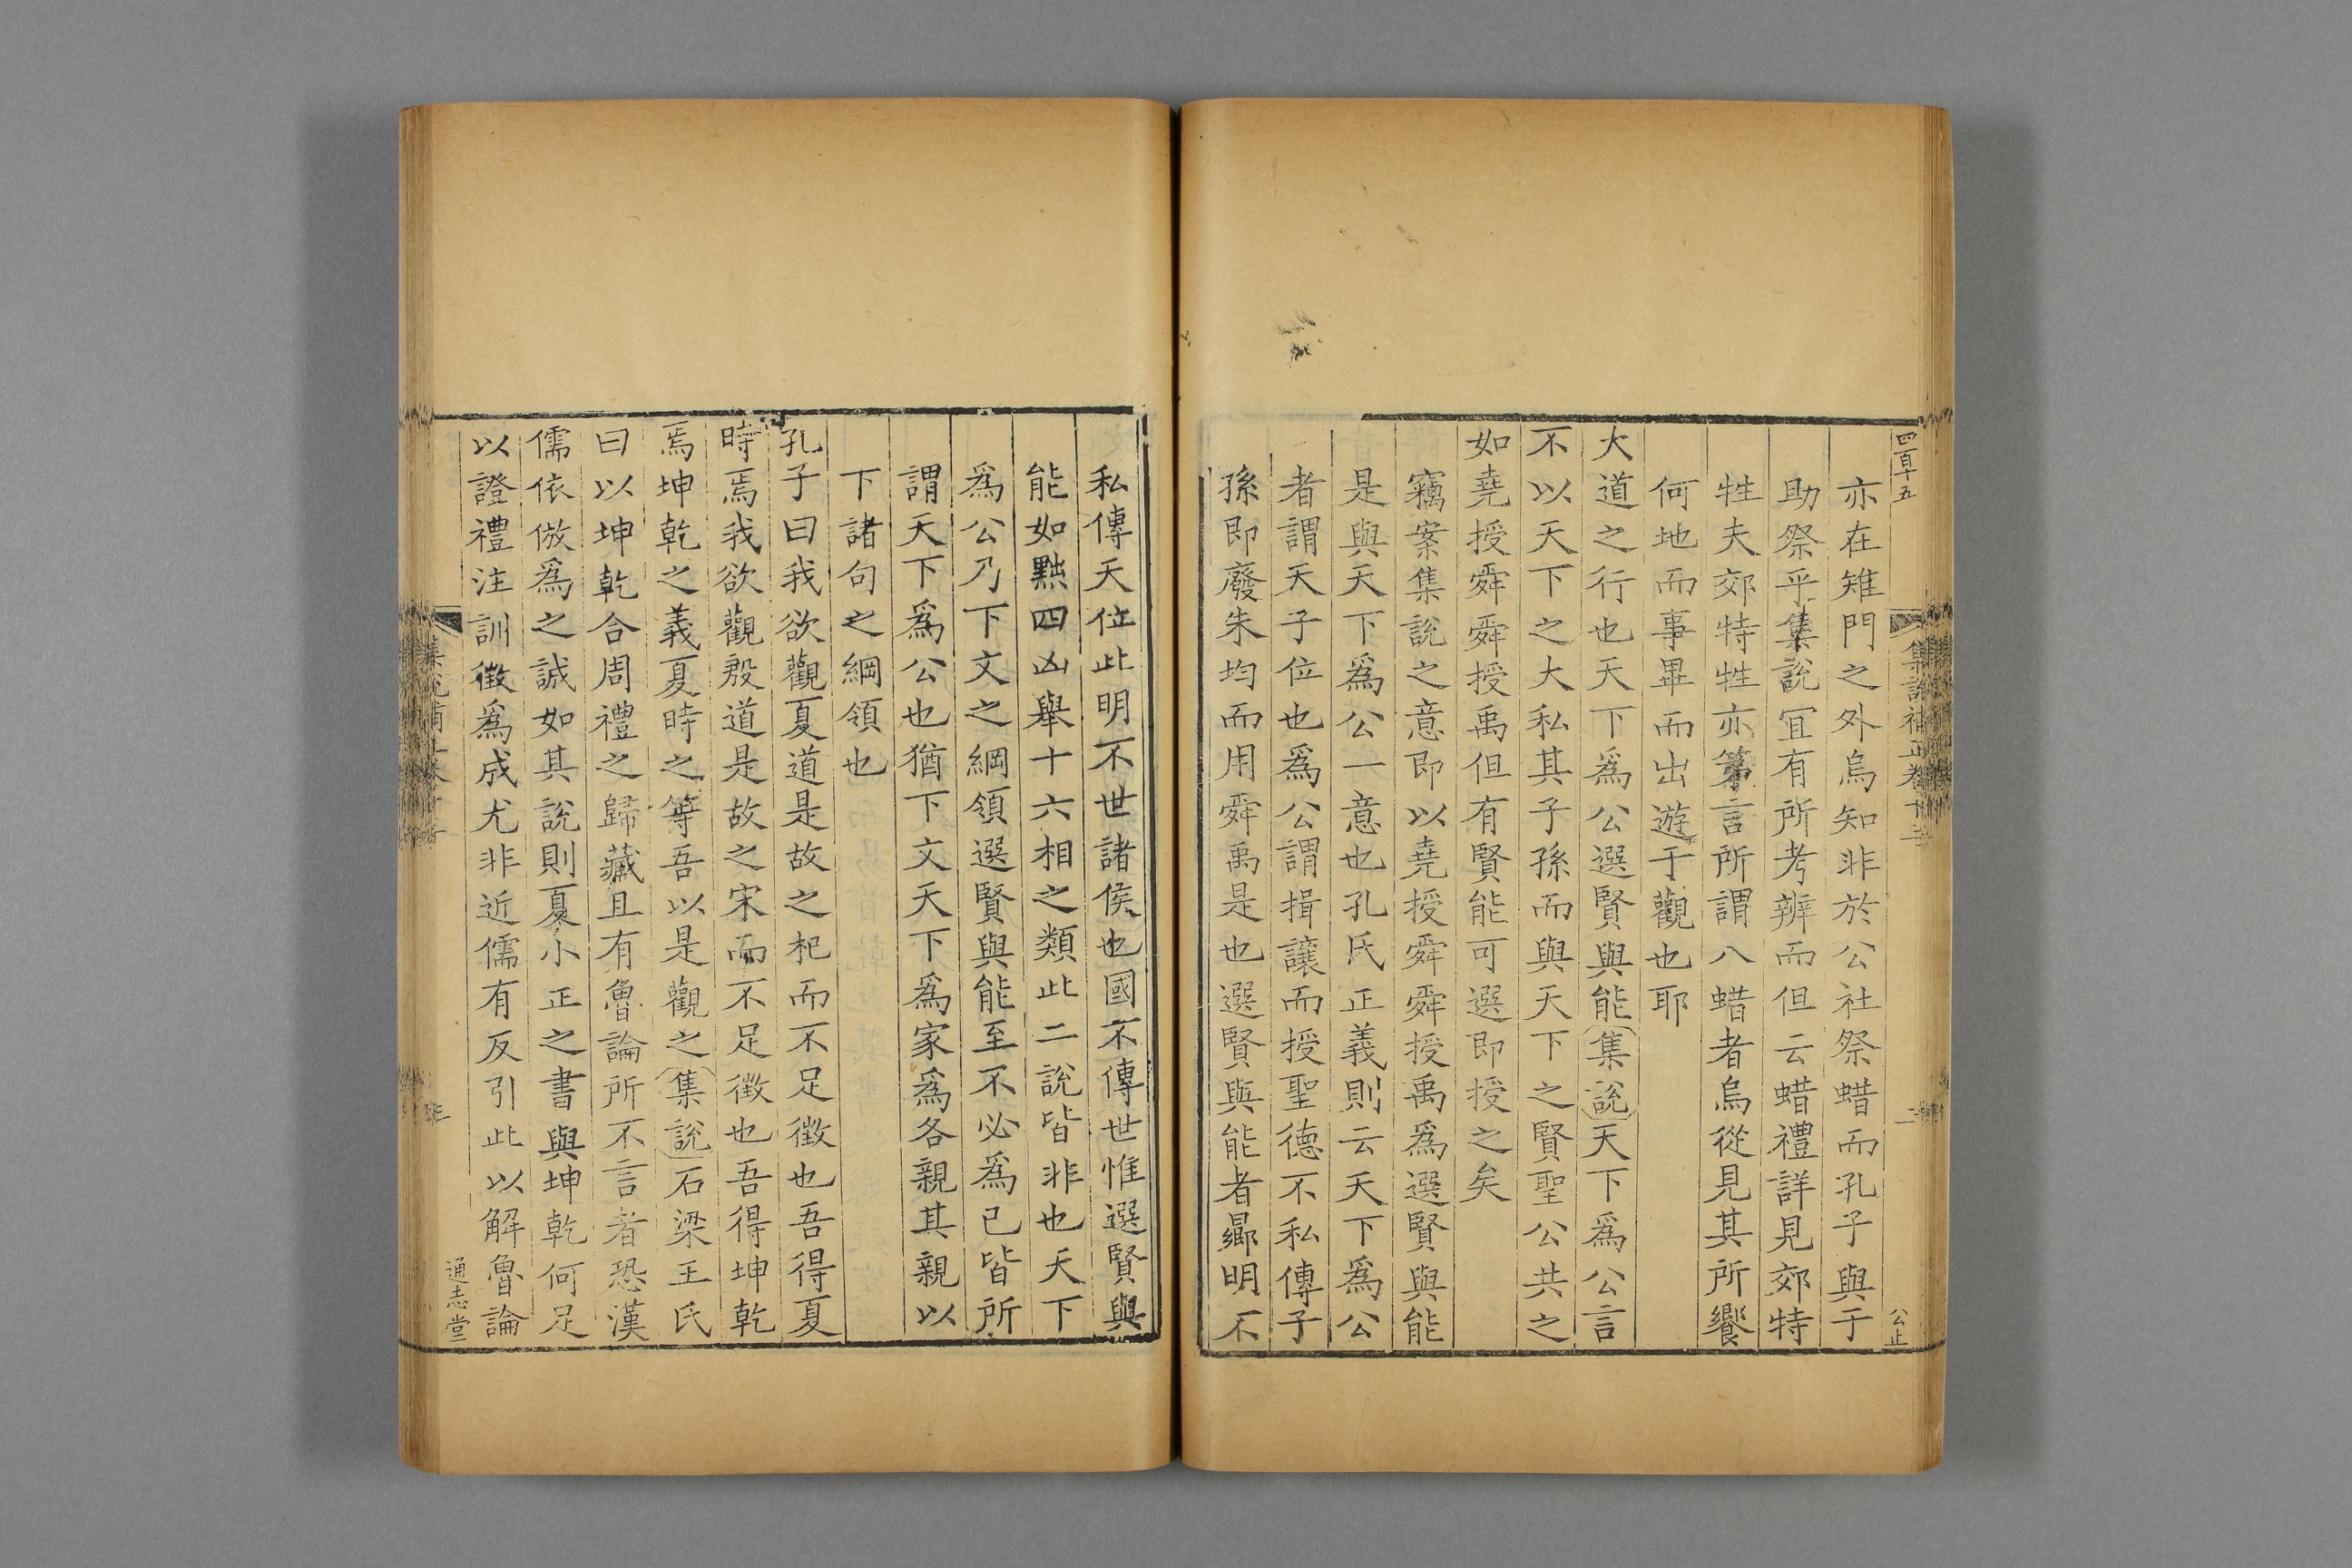 四百十五
集說補正卷十三
二
公止
亦在雉門之外烏知非於公社祭蜡而孔子與于
助祭乎集說宜有所考辨而但云蜡禮詳見郊特
牲夫郊特牲亦第言所謂八蜡者烏從見其所饗
何地而事畢而出遊于觀也耶
大道之行也天下爲公選賢與能集說天下爲公言
不以天下之大私其子孫而與天下之賢聖公共之
如堯授舜舜授禹但有賢能可選即授之矣
竊案集說之意即以堯授舜舜授禹爲選賢與能
是與天下爲公一意也孔氏正義則云天下爲公
者謂天子位也爲公謂揖讓而授聖德不私傳子
孫即廢朱均而用舜禹是也選賢與能者曏明不
私傳天位此明不世諸侯也國不傳世惟選賢與
能如黜四凶舉十六相之類此二說皆非也天下
爲公乃下文之綱領選賢與能至不必爲己皆所
謂天下爲公也猶下文天下爲家爲各親其親以
下諸句之綱領也
孔子曰我欲觀夏道是故之杞而不足徵也吾得夏
時焉我欲觀殷道是故之宋而不足徵也吾得坤乾
焉坤乾之義夏時之等吾以是觀之集說石梁王氏
曰以坤乾合周禮之歸藏且有魯論所不言者恐漢
儒依倣爲之誠如其說則夏小正之書與坤乾何足
以證禮注訓徵爲成尤非近儒有反引此以解魯論
通志堂